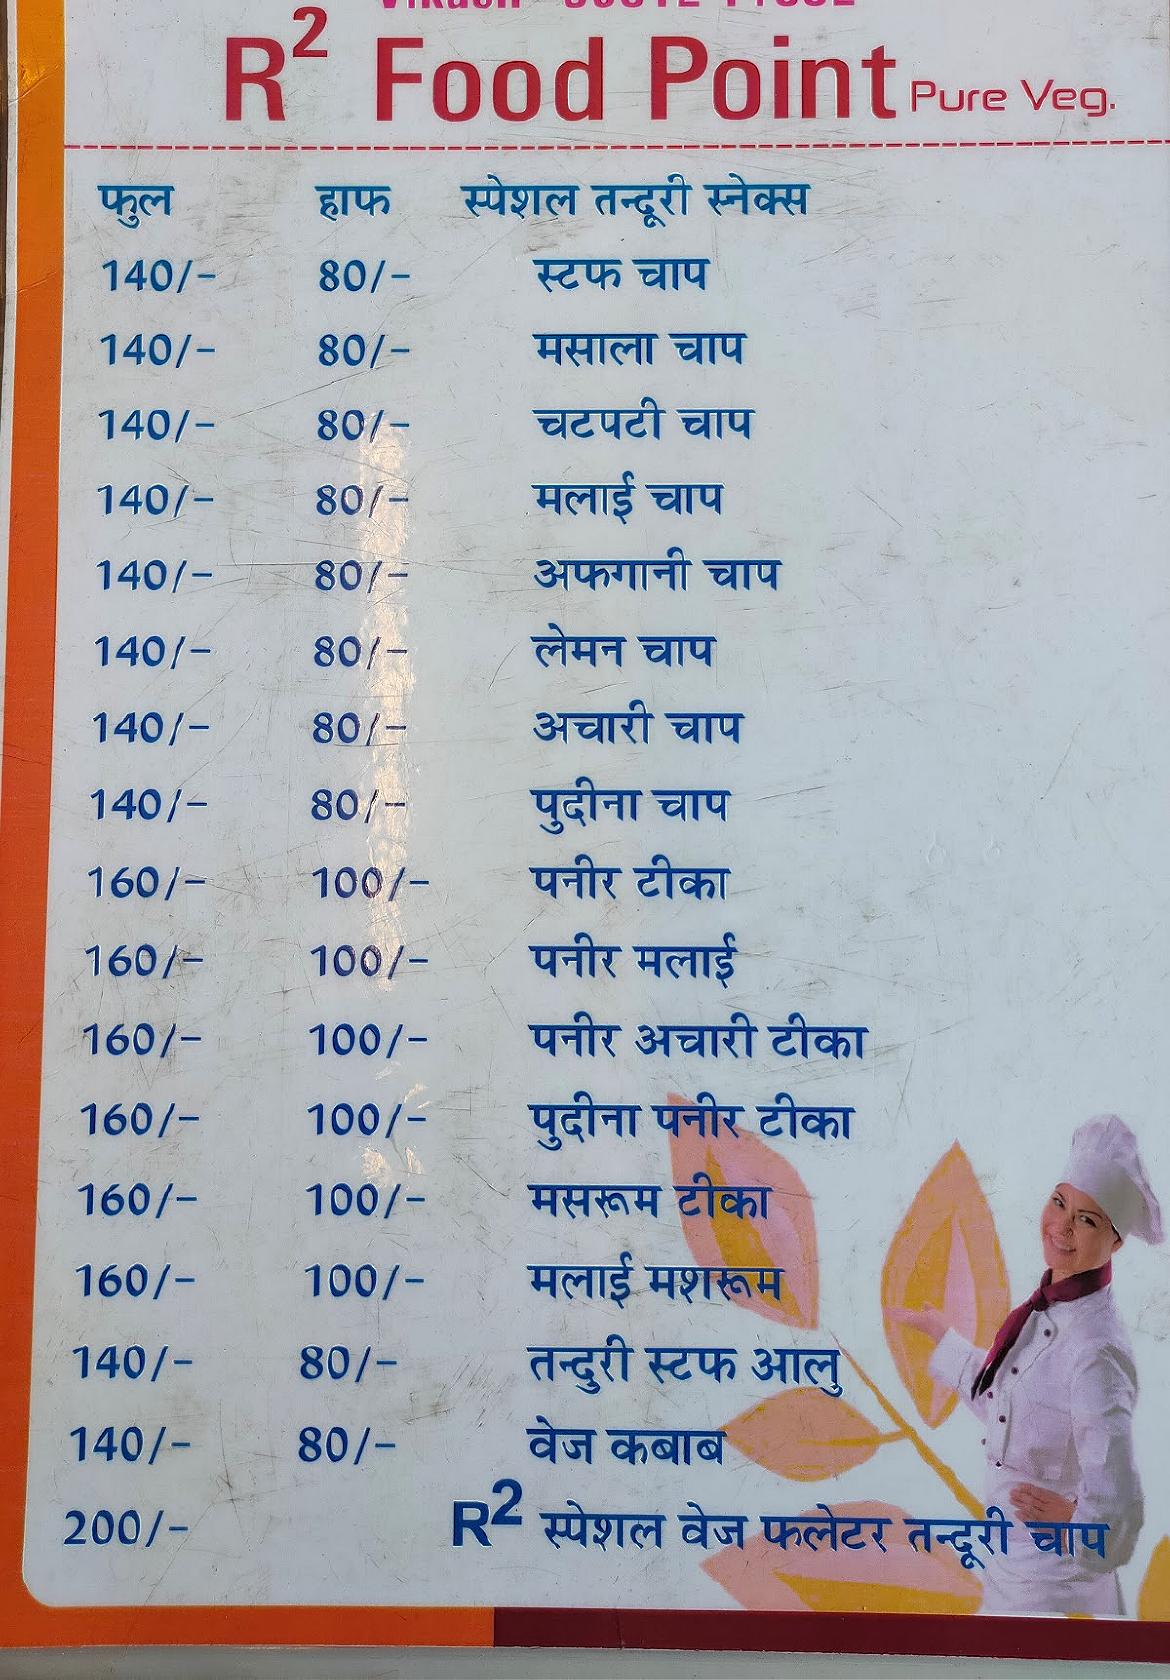 R² Food Point Pure Veg.
फुल हाफ स्पेशल तन्दूरी स्नेक्स
140/- 80/- स्टफ चाप
140/- 80/- मसाला चाप
140/- 80/- चटपटी चाप
140/- 80/- मलाई चाप
140/- 80/- अफगानी चाप
140/- 80/- लेमन चाप
140/- 80/- अचारी चाप
140/- 80/- पुदीना चाप
160/- 100/- पनीर टीका
160/- 100/- पनीर मलाई
160/- 100/- पनीर अचारी टीका
160/- 100/- पुदीना पनीर टीका
160/- 100/- मसरूम टीका
160/- 100/- मलाई मशरूम
140/- 80/- तन्दुरी स्टफ आलु
140/- 80/- वेज कबाब
200/- R² स्पेशल वेज फलेटर तन्दूरी चाप